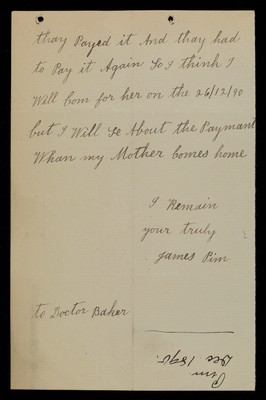 thay Payed it And thay had
to Pay it Again So I think I
Will bom for her on the 26/12/90
but I Will Se About the Paymant
Whan my Mother bomes home
I Remain
your truly
James Pim
to Doctor Baker
Pim
Dec 1890.